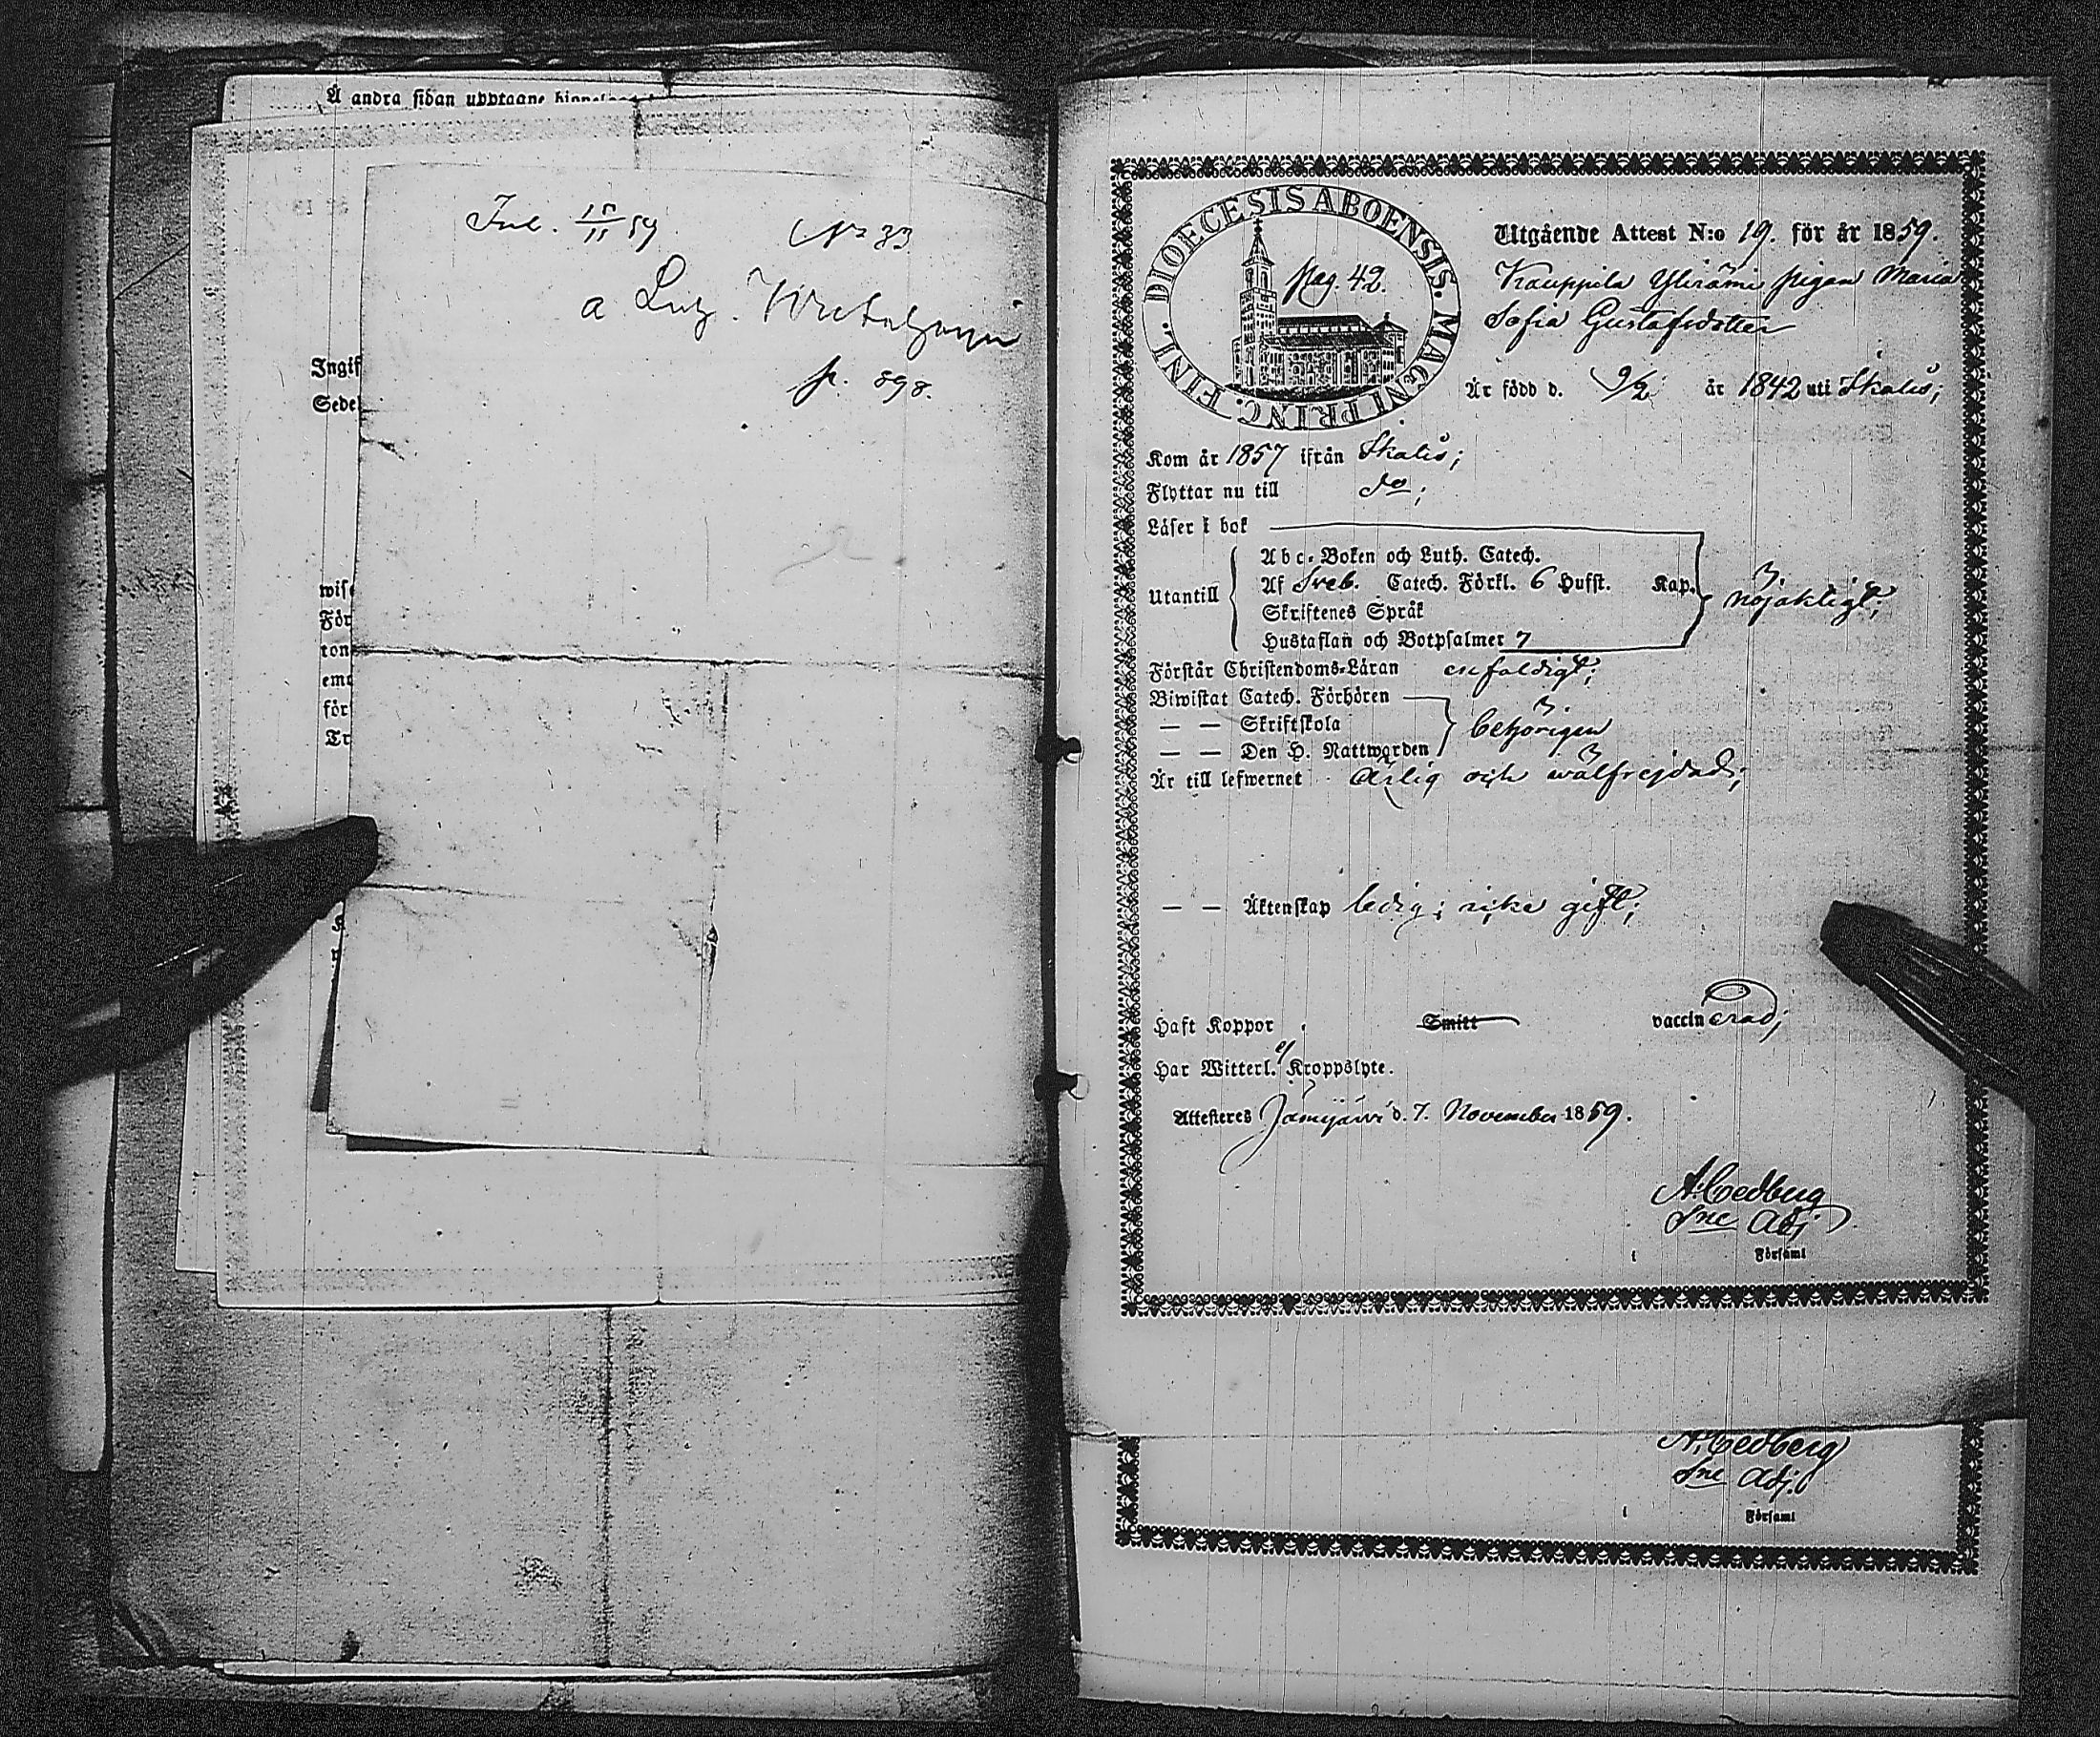 Å andra sidan upptagne
Inl. 15/11 59
No 33
a Luz.
p. 898.
Ingif
Sedel
wise
För
ton
emo
för
Tr
DIOECESIS ABOENSIS. MAGNI PRINC. FINL.
pag. 42.
Utgående Attest N:o 19. för år 1859.
Kauppila Ylirämi pigan Maria
Sofia Gustafsdotter
Är född d. 9/2 år 1842 uti Ikalis;
Kom år 1857 ifrån Ikalis;
Flyttar nu till do;
Läser i bok
Abc-Boken och Luth. Catech.
Utantill Af Sveb. Catech. Förkl. 6 Hufst. Kap. nöjaktigt;
Skriftenes Språk
Hustaflan och Botpsalmer 7
Förstår Christendoms-Läran enfaldigt;
Biwistat Catech. Förhören
— — Skriftskola behörigen
— — Den H. Nattwarden
Är till lefwernet ärlig och wälfrejdad;
— — Äktenskap ledig; icke gift;
Haft Koppor Smitt vaccinerad;
Har Witterl. ej Kroppslyte.
Attesteres Jämijärwi d. 7. November 1859.
A. Cedberg
Sne Adj
i Församl
A. Cedberg
Sne Adj.
i Församl